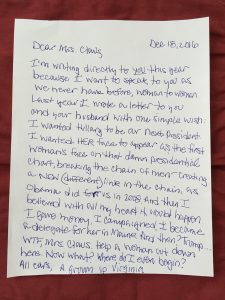 Dec 18, 2016
Dear Mrs. Claus,
I'm writing directly to you this year
because I want to speak to you as
we never have before, woman to woman.
Last year I wrote a letter to you
and your husband with one simple wish:
I wanted Hillary to be our next President
I wanted HER face to appear as the first
woman's face on that damn presidential
chart, breaking the chain of men - creating
a new (different) link in the chain, as
Obama did for us in 2008. And then I
believed with all my heart it would happen
I gave money, I campaigned, I became
a delegate for her in Maine. And then? Trump.
WTF, Mrs. Claus. Help a woman out down
here. Now what? Where do I even begin?
All ears, A grown up Virginia